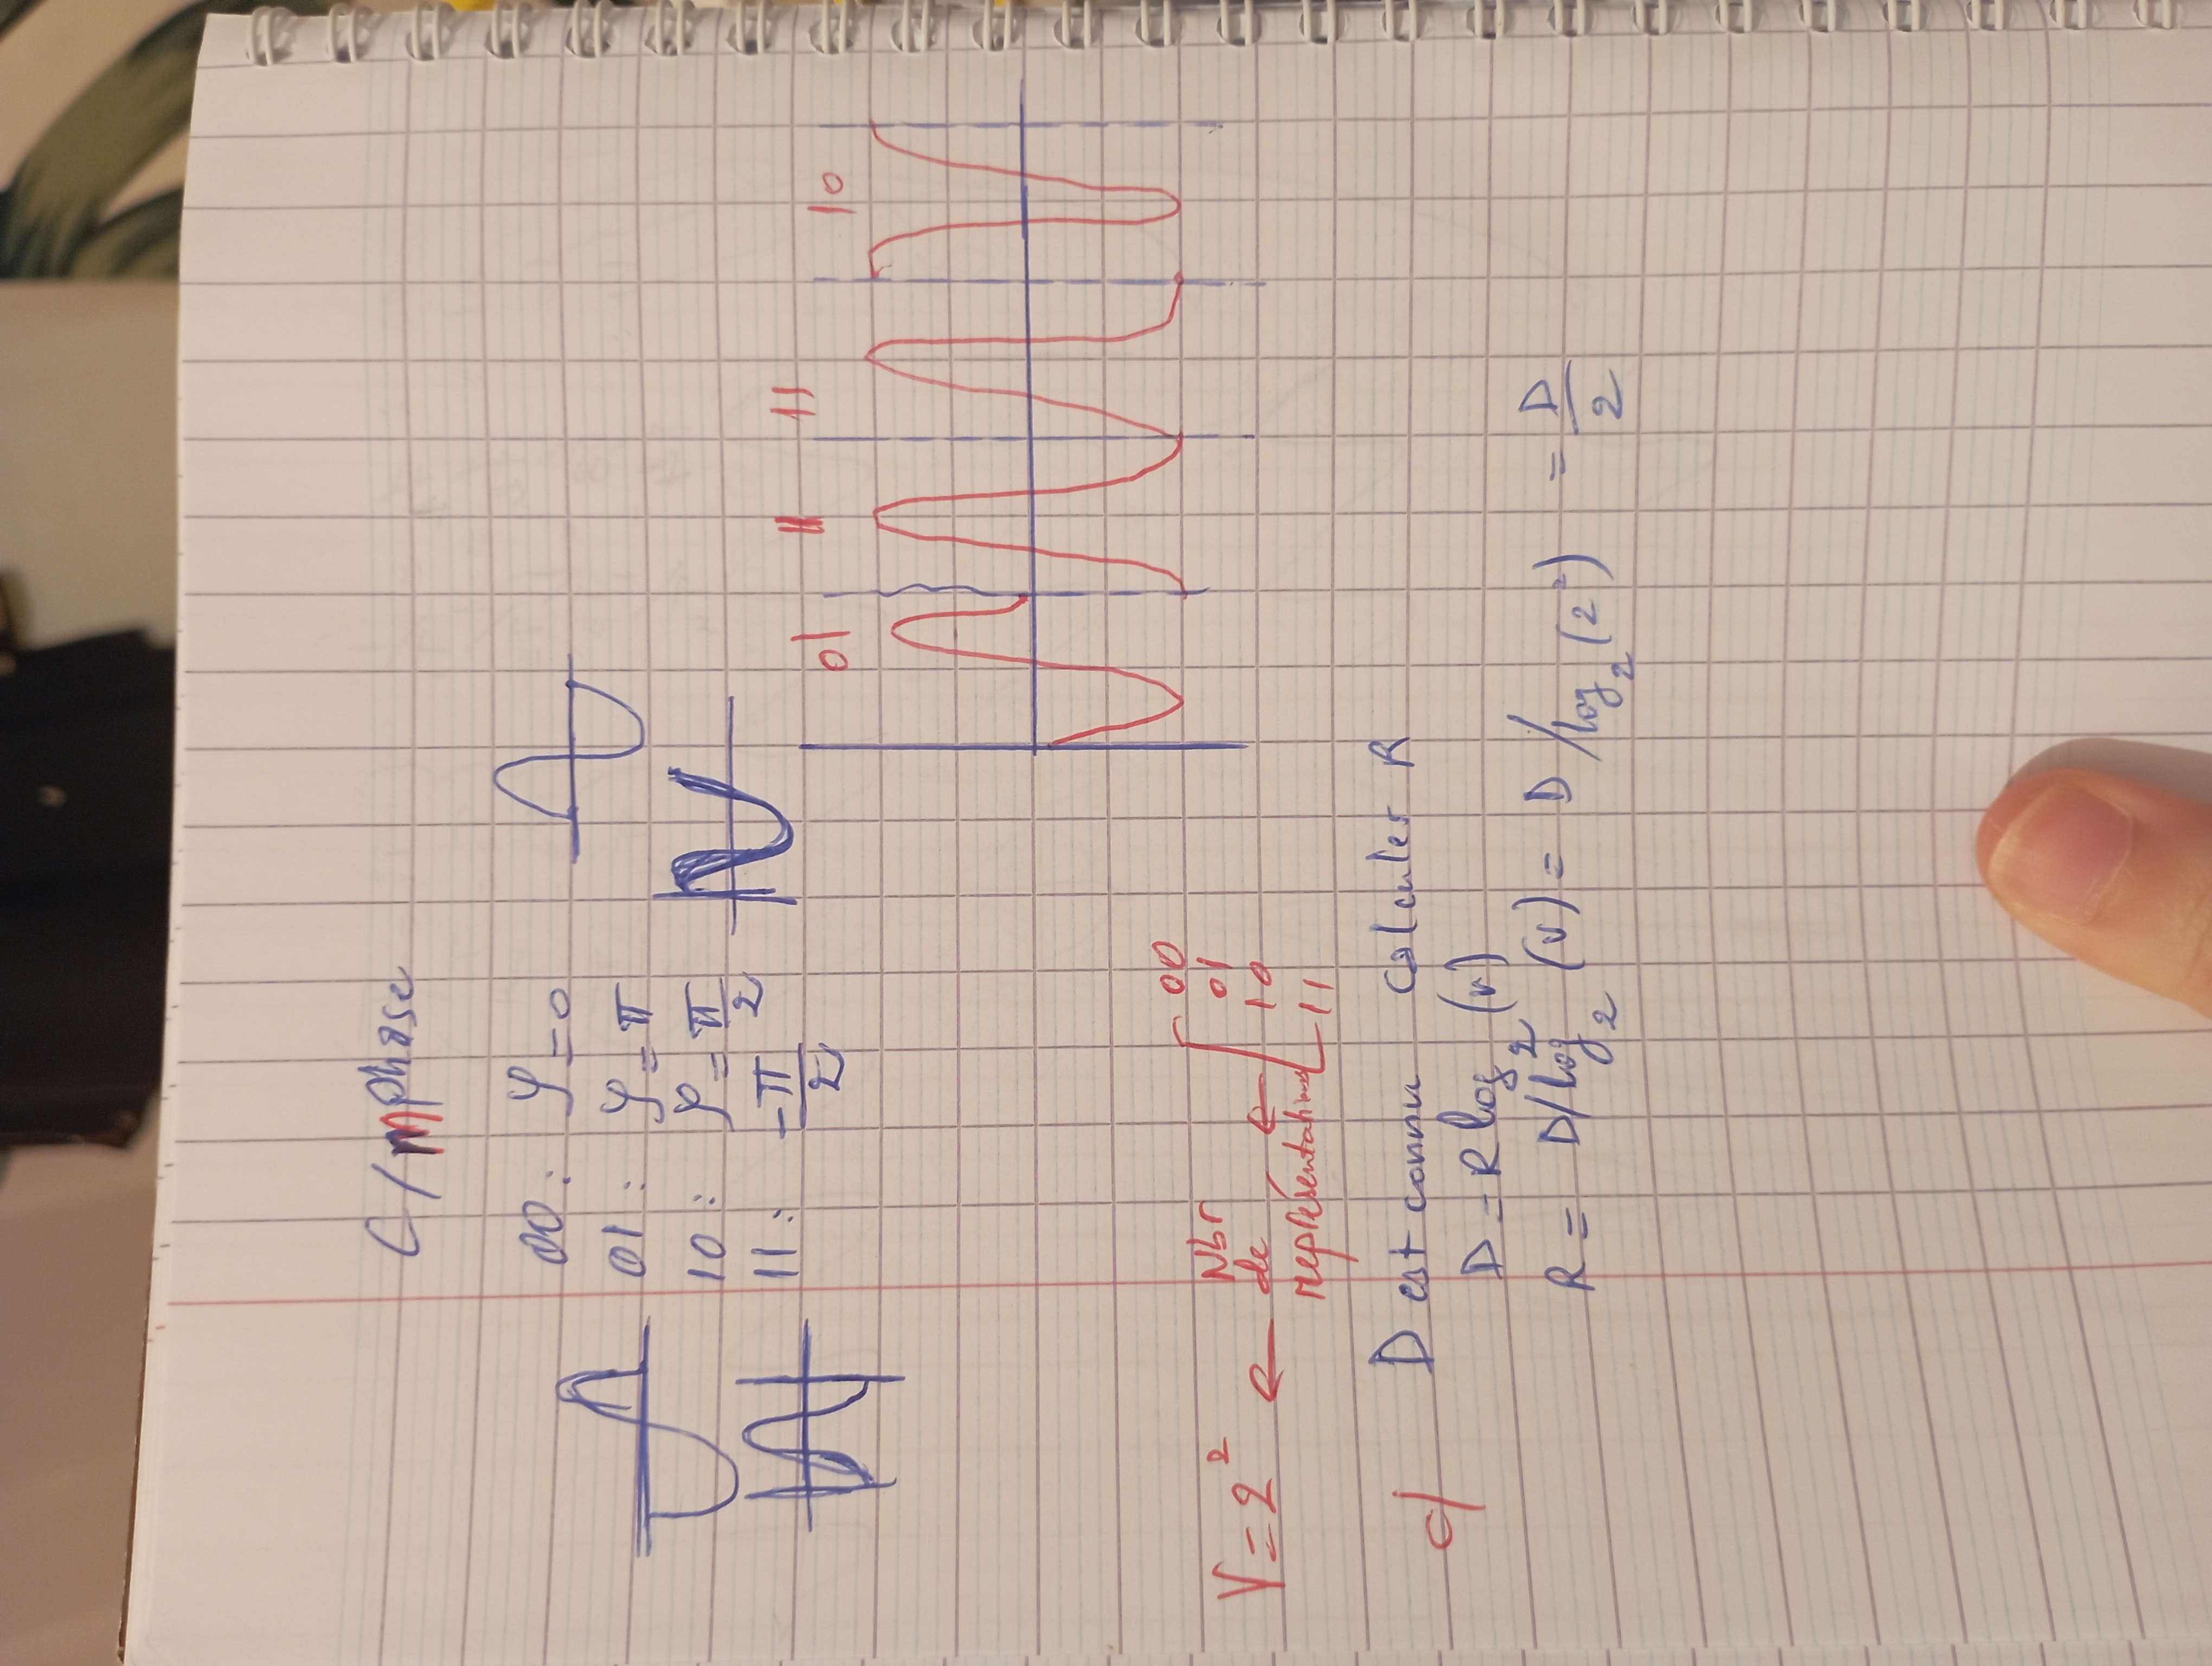 C/ mphase
00 : φ = 0
01 : φ = π
10 : φ = π/2
11 : -π/2
01 11 11 10
00
01
10
11
Nbr
de
représentations
V = 2²
c/ D est connu calculer R
D = R log₂ (v)
R = D/log₂ (v) = D/log₂ (2²) = D/2